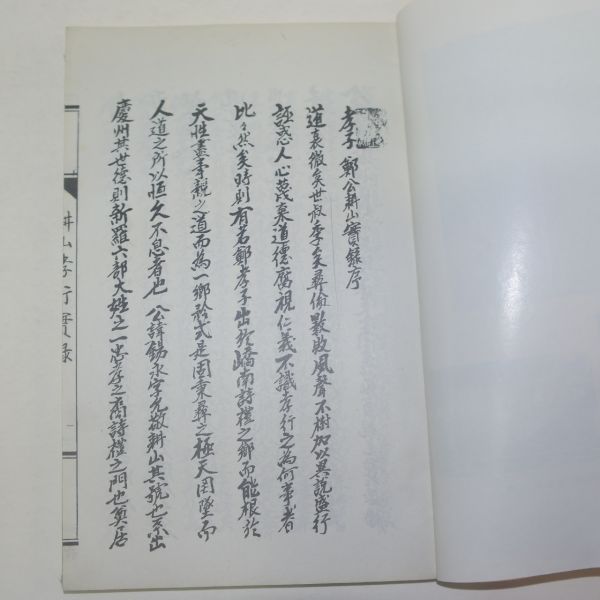 孝子鄭公耕山實錄序
道衰微矣世叔季矣彛倫斁敗風聲不樹加以異說盛行
誣惑人心蔑棄道德腐視仁義不識孝行之為何事者
比々然矣時則有若鄭孝子出於嶠南詩禮之鄉而能根於
天性盡事親之道而為一鄉矜式是固秉彛之極天罔墜而
人道之所以恒久不息者也 公諱錫永字允敬耕山其號也系出
慶州其世德則新羅六部大姓之一忠孝之裔詩禮之門也奠居
耕山孝行實錄
一